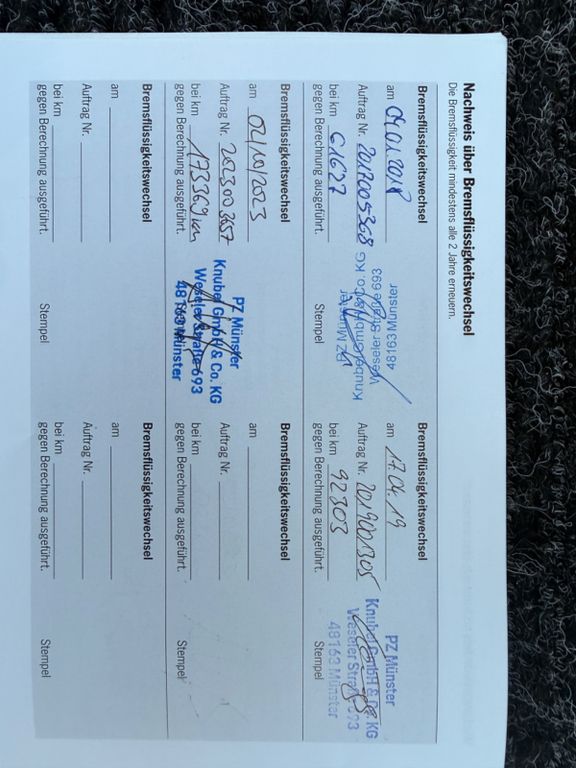 Nachweis über Bremsflüssigkeitswechsel
Die Bremsflüssigkeit mindestens alle 2 Jahre erneuern.
Bremsflüssigkeitswechsel
am 04.01.2018
Auftrag Nr. 2017005368
bei km 61627
gegen Berechnung ausgeführt.
PZ Münster
Knubel GmbH & Co. KG
Weseler Straße 693
48163 Münster
Stempel
Bremsflüssigkeitswechsel
am 17.04.19
Auftrag Nr. 2019001305
bei km 92303
gegen Berechnung ausgeführt.
PZ Münster
Knubel GmbH & Co. KG
Weseler Straße 693
48163 Münster
Stempel
Bremsflüssigkeitswechsel
am 02/10/2023
Auftrag Nr. 2023003657
bei km 173369 km
gegen Berechnung ausgeführt.
PZ Münster
Knubel GmbH & Co. KG
Weseler Straße 693
48163 Münster
Bremsflüssigkeitswechsel
am
Auftrag Nr.
bei km
gegen Berechnung ausgeführt.
Stempel
Bremsflüssigkeitswechsel
am
Auftrag Nr.
bei km
gegen Berechnung ausgeführt.
Stempel
Bremsflüssigkeitswechsel
am
Auftrag Nr.
bei km
gegen Berechnung ausgeführt.
Stempel